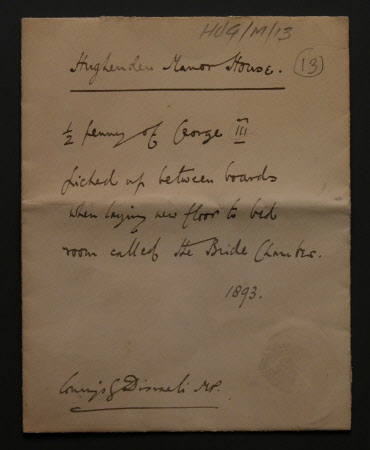 HUG/M/13
Hughenden Manor House. 13
½ penny of George III
picked up between boards
when laying new floor to bed
room called the Bride Chamber.
1893.
Coningsby Disraeli MP.